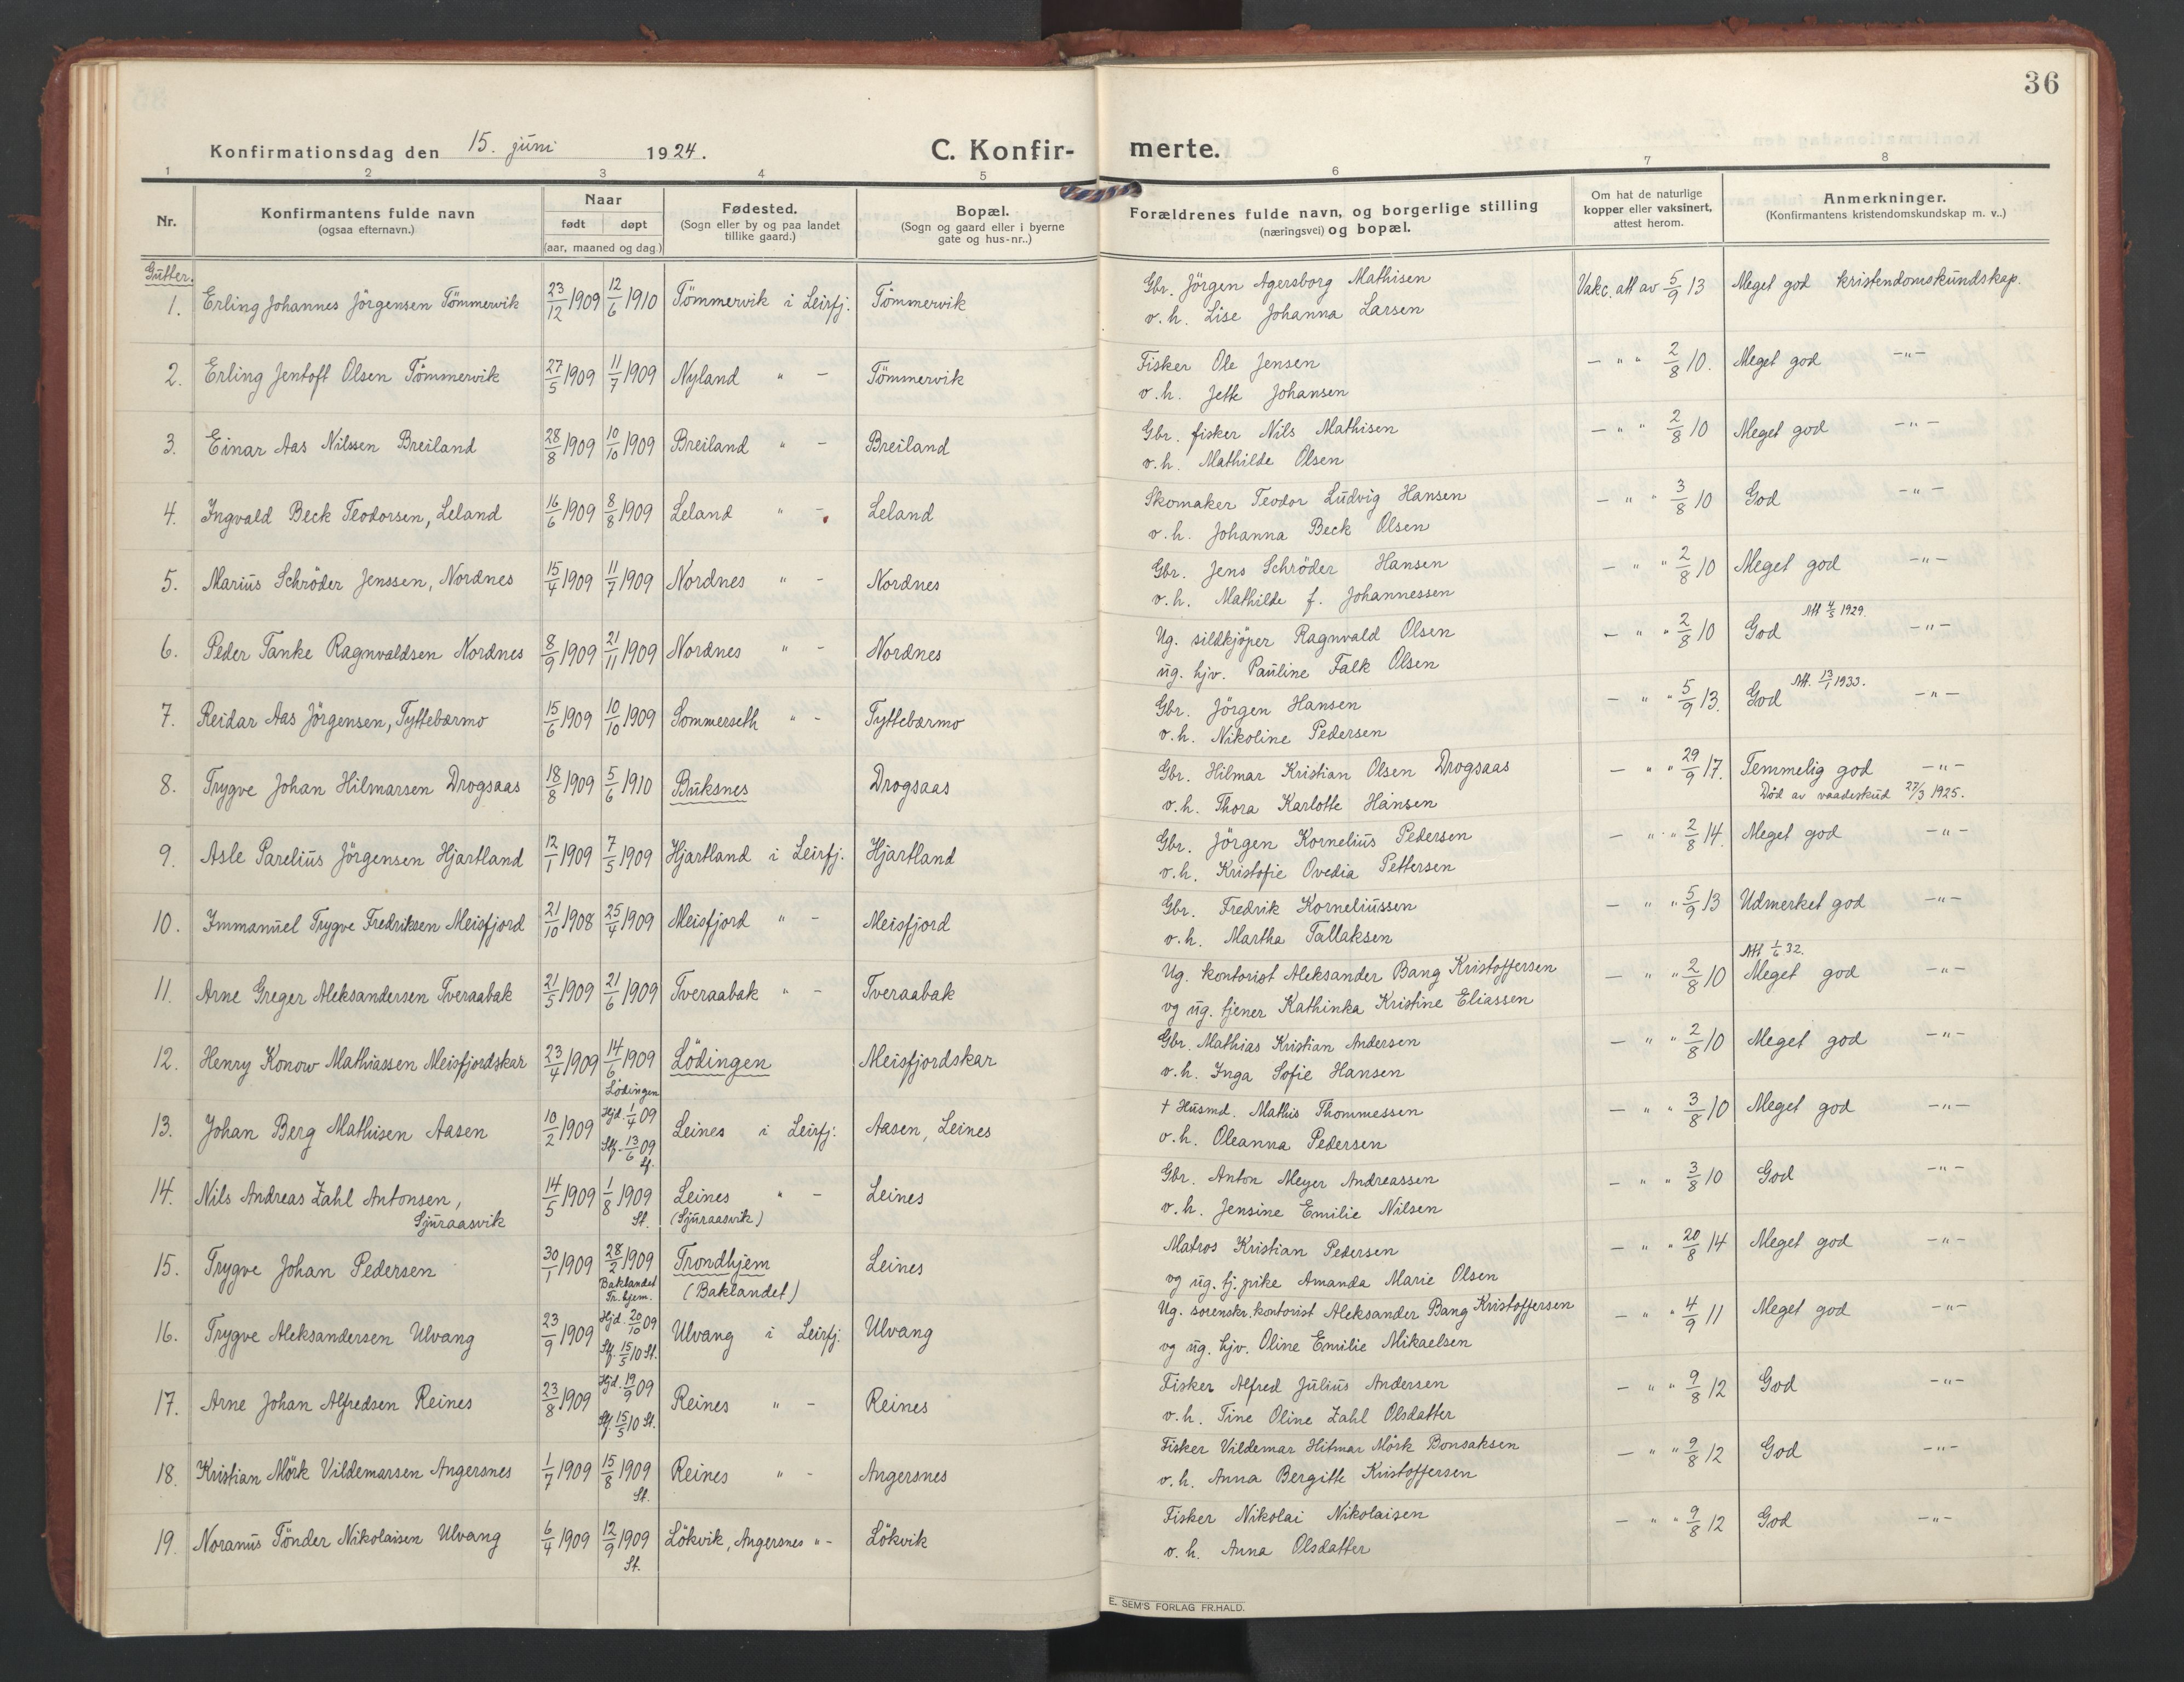 36
Konfirmationsdag den 15. juni 1924. C. Konfir- merte.
1 2 3 4 5 6 7 8
Nr. Konfirmantens fulde navn (ogsaa efternavn.) Naar født døpt (aar, maaned og dag.) Fødested. (Sogn eller by og paa landet tillike gaard.) Bopæl. (Sogn og gaard eller i byerne gate og hus-nr..) Forældrenes fulde navn, og borgerlige stilling (næringsvei) og bopæl. Om hat de naturlige kopper eller vaksinert, attest herom. Anmerkninger. (Konfirmantens kristendomskundskap m. v..)
Gutter.
1. Erling Johannes Jörgensen Tömmervik 23/12 1909 12/6 1910 Tömmervik i Leirfj. Tömmervik Gbr. Jörgen Agersborg Mathisen Vakc. att av 5/9 13 Meget god kristendomskundskap.
o. h. Lise Johanna Larsen
2. Erling Jentoft Olsen Tömmervik 27/5 1909 11/7 1909 Nyland " - Tömmervik Fisker Ole Jensen - " " 2/8 10. Meget god -"-
o. h. Jette Johansen
3. Einar Aas Nilssen Breiland 28/8 1909 10/10 1909 Breiland " - Breiland Gbr. fisker Nils Mathisen - " " 2/8 10 Meget god -"-
o. h. Mathilde Olsen
4. Ingvald Beck Teodorsen, Leland 16/6 1909 8/8 1909 Leland " - Leland Skomaker Teodor Ludvig Hansen - " " 3/8 10 God -"-
o. h. Johanna Beck Olsen
5. Marius Schröder Jenssen, Nordnes 15/4 1909 11/7 1909 Nordnes " - Nordnes Gbr. Jens Schröder Hansen - " " 2/8 10 Meget god -"-
o. h. Mathilde f. Johannessen
6. Peder Tanke Ragnvaldsen Nordnes 8/9 1909 21/11 1909 Nordnes " - Nordnes Ug. sildkjöper Ragnvald Olsen - " " 2/8 10 God Att 4/5 1929. -"-
ug. hjv. Pauline Falk Olsen
7. Reidar Aas Jörgensen, Tyttebærmo 15/6 1909 10/10 1909 Sommerseth " - Tyttebærmo Gbr. Jörgen Hansen - " " 5/9 13. God Att. 13/1 1933. -"-
o. h. Nikoline Pedersen
8. Trygve Johan Hilmarsen Drogsaas 18/8 1909 5/6 1910 Buksnes Drogsaas Gbr. Hilmar Kristian Olsen Drogsaas - " " 29/9 17. Temmelig god -"-
o. h. Thora Karlotte Hansen Död av vaadeskud 27/3 1925.
9. Asle Parelius Jörgensen Hjartland 12/1 1909 7/5 1909 Hjartland i Leirfj. Hjartland Gbr. Jörgen Kornelius Pedersen - " " 2/8 14. Meget god -"-
o. h. Kristofie Ovedia Pettersen
10. Immanuel Trygve Fredriksen Meisfjord 21/10 1908 25/4 1909 Meisfjord " - Meisfjord Gbr. Fredrik Korneliussen - " " 5/9 13 Udmerket god -"-
o. h. Martha Tallaksen
11. Arne Greger Aleksandersen Tveraabak 21/5 1909 21/6 1909 Tveraabak " - Tveraabak Ug. kontorist Aleksander Bang Kristoffersen - " " 2/8 10 Att 1/6 32. Meget god -"-
og ug. tjener Kathinka Kristine Eliassen
12. Henry Konow Mathiassen Meisfjordskar 23/4 1909 14/6 1909 Lödingen Lödingen Meisfjordskar Gbr. Mathias Kristian Andersen - " " 2/8 10 Meget god -"-
o. h. Inga Sofie Hansen
13. Johan Berg Mathisen Aasen 10/2 1909 Hjd. 1/4 09 Stf. 13/6 09 Leines i Leirfj. Aasen, Leines † Husmd. Mathis Thommessen - " " 3/8 10 Meget god -"-
o. h. Oleanna Pedersen
14. Nils Andreas Zahl Antonsen, Sjuraasvik 14/5 1909 1/8 1909 St. Leines " - (Sjuraasvik) Leines Gbr. Anton Meyer Andreassen - " " 3/8 10 God -"-
o. h. Jensine Emilie Nilsen
15. Trygve Johan Pedersen 30/1 1909 28/2 1909 Baklandet Tr.hjem. Trondhjem (Baklandet) Leines Matros Kristian Pedersen - " " 20/8 14 Meget god -"-
og ug. tj. pike Amanda Marie Olsen
16. Trygve Aleksandersen Ulvang 23/9 1909 Hjd. 20/10 09 Stf. 15/5 10 St. Ulvang i Leirfj. Ulvang Ug. sorenskr. kontorist Aleksander Bang Kristoffersen - " " 4/9 11 Meget god -"-
og ug. hjv. Oline Emilie Mikaelsen
17. Arne Johan Alfredsen Reines 23/8 1909 Hjd. 19/9 09 Stf. 15/5 10 St. Reines " - Reines Fisker Alfred Julius Andersen - " " 9/8 12 God -"-
o. h. Tine Oline Zahl Olsdatter
18. Kristian Mörk Vildemarsen Angersnes 1/7 1909 15/8 1909 St. Reines " - Angersnes Fisker Vildemar Hilmar Mörk Bonsaksen - " " 9/8 12 God -"-
o. h. Anna Bergitte Kristoffersen
19. Noranus Tönder Nikolaisen Ulvang 6/4 1909 12/9 1909 St. Lökvik, Angersnes " - Lökvik Fisker Nikolai Nikolaisen - " " 9/8 12 God -"-
o. h. Anna Olsdatter
E. SEM'S FORLAG FR.HALD.